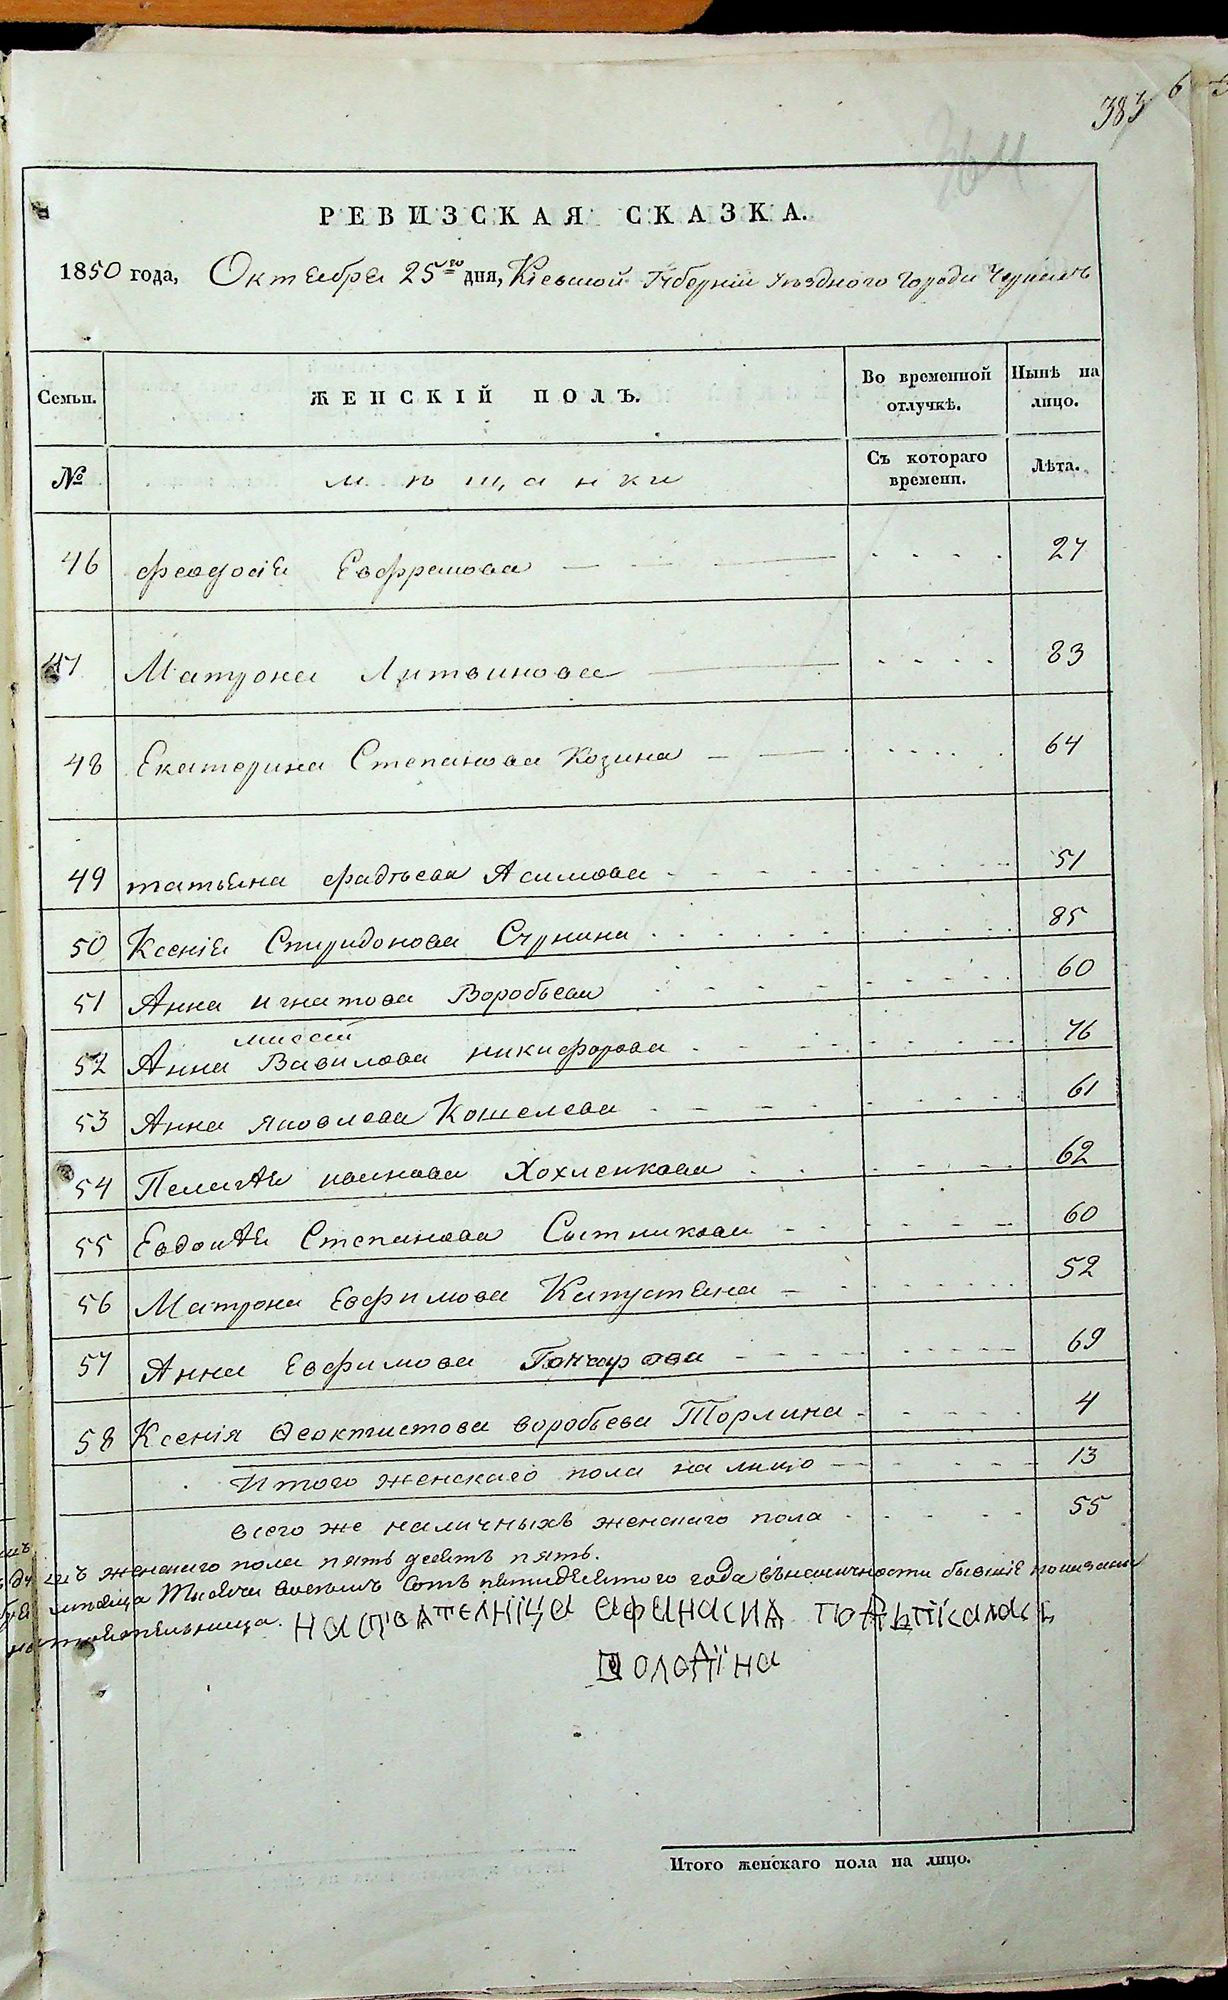 383
РЕВИЗСКАЯ СКАЗКА.
1850 года, Октября 25го дня, Кіевской Губерніи Уѣзднаго Города
Семьи. ЖЕНСКІЙ ПОЛЪ. Во временной отлучкѣ. Нынѣ на лицо.
№ мѣщанки Съ котораго времени. Лѣта.
46 Феодосія 27
47 Матрона Литвинова 83
48 Екатерина Степанова Козина 64
49 татьяна фадѣева Асимова 51
50 Ксенія Спиридонова 85
51 Анна игнатова Воробьева 60
52 Анна Вавилова никифорова 76
53 Анна яковлева Кошелева 61
54 Пелагѣя иванова Хохленкова 62
55 Евдокѣя Степанова Сытникова 60
56 Матрона Евфимова Капустяна 52
57 Анна Евфимова Гончарова 69
58 Ксенія Ѳеоктистова воробьева Торлина 4
Итого женскаго пола на лицо 13
всего же наличныхъ женскаго пола 55
женскаго пола пять десятъ пять.
мѣсяца Тысяча восемь Сотъ пятидесятого года бывшіе показаны
настоятельница. подьпісалась